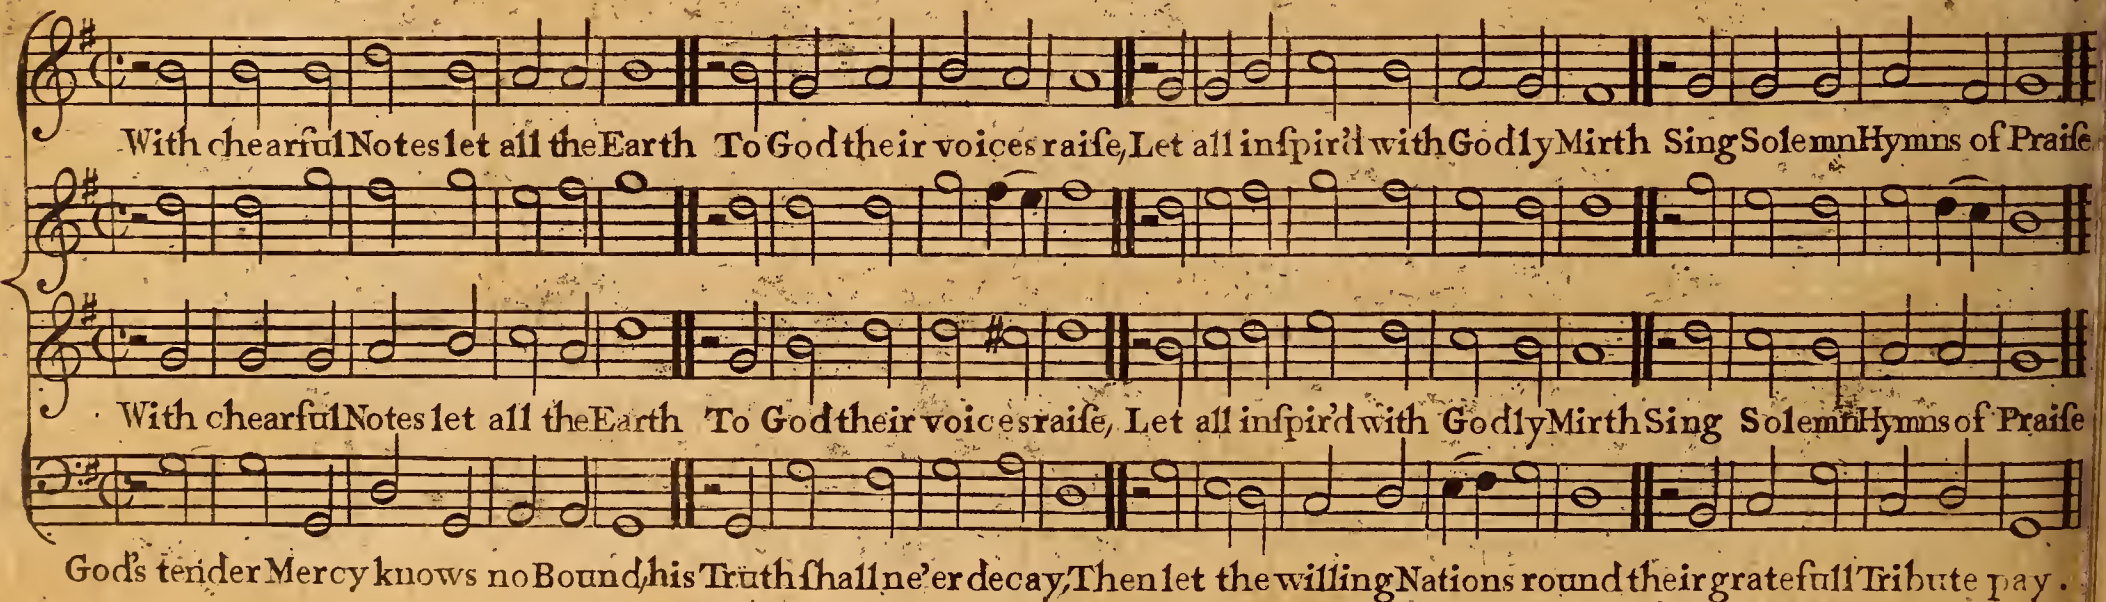 With chearful Notes let all the Earth To God their voices raiſe, Let all inſpir'd with Godly Mirth Sing Solemn Hymns of Praiſe
With chearful Notes let all the Earth To God their voices raiſe, Let all inſpir'd with Godly Mirth Sing Solemn Hymns of Praiſe
God's tender Mercy knows no Bound, his Truth ſhall ne'er decay, Then let the willing Nations round their gratefull Tribute pay.